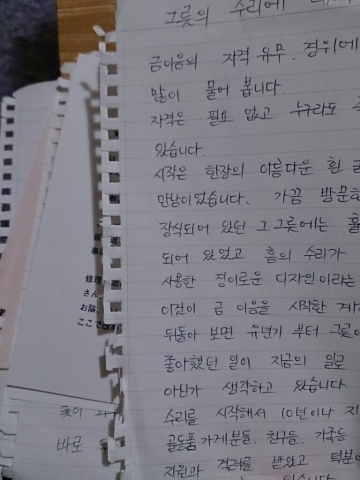 그릇의 수리에
금이음의 자격 유무. 경위에
많이 물어 봅니다.
자격은 필요 없고 누구라도
있습니다.
시작은 한장의 아름다운 흰
만남이었습니다. 가끔 방문
장식되어 있던 그 그릇에는
되어 있었고 흠의 수리가
사용한 경이로운 디자인이라는
이것이 금 이음을 시작한 계
뒤돌아 보면 유년기 부터 그릇
좋아했던 일이 지금의 일로
아닌가 생각하고 있습니다
수리를 시작해서 10년이나 지
골동품가게분들. 친구들. 가족들
지원과 격려를 받았고 덕분
修理
さん
お陰
ここで
꽃이
바로